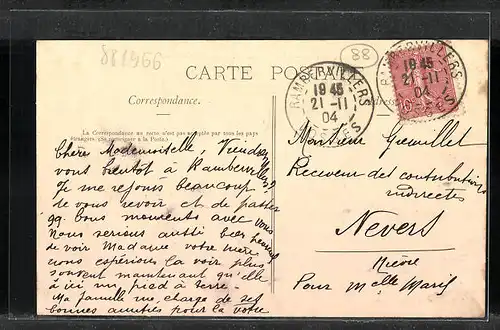 881966
88
CARTE POSTALE
Correspondance.
La Correspondance au recto n'est pas acceptée par tous les pays
étrangers. (Se renseigner à la Poste.)
RAMBERVILLERS
19 45
21 - 11
04
VOSGES
RAMBERVILLERS
19 45
21 - 11
04
Chère Mademoiselle, Viendrez
vous bientôt à Rambervillers?
Je me rejouis beaucoup
de vous revoir et de passer
qq. bons moments avec vous
Nous serions aussi bien heureux
de voir Madame votre mère
nous espérions la voir plus
souvent maintenant qu'elle
a ici un pied à terre.
Ma famille me charge de ses
bonnes amitiés pour la votre
Monsieur
Receveur des contributions
indirectes
Nevers
Nièvre
Pour Melle Marie